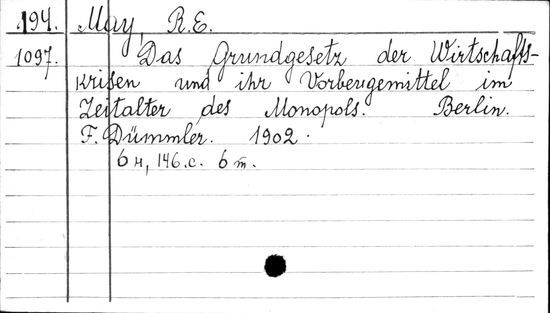 194. May, R.E.
1097. Das Grundgesetz der Wirtschafts-
krisen und ihr Vorbeugemittel im
Zeitalter des Monopols. Berlin.
F. Dümmler. 1902.
6 н, 146.c. 6 т.